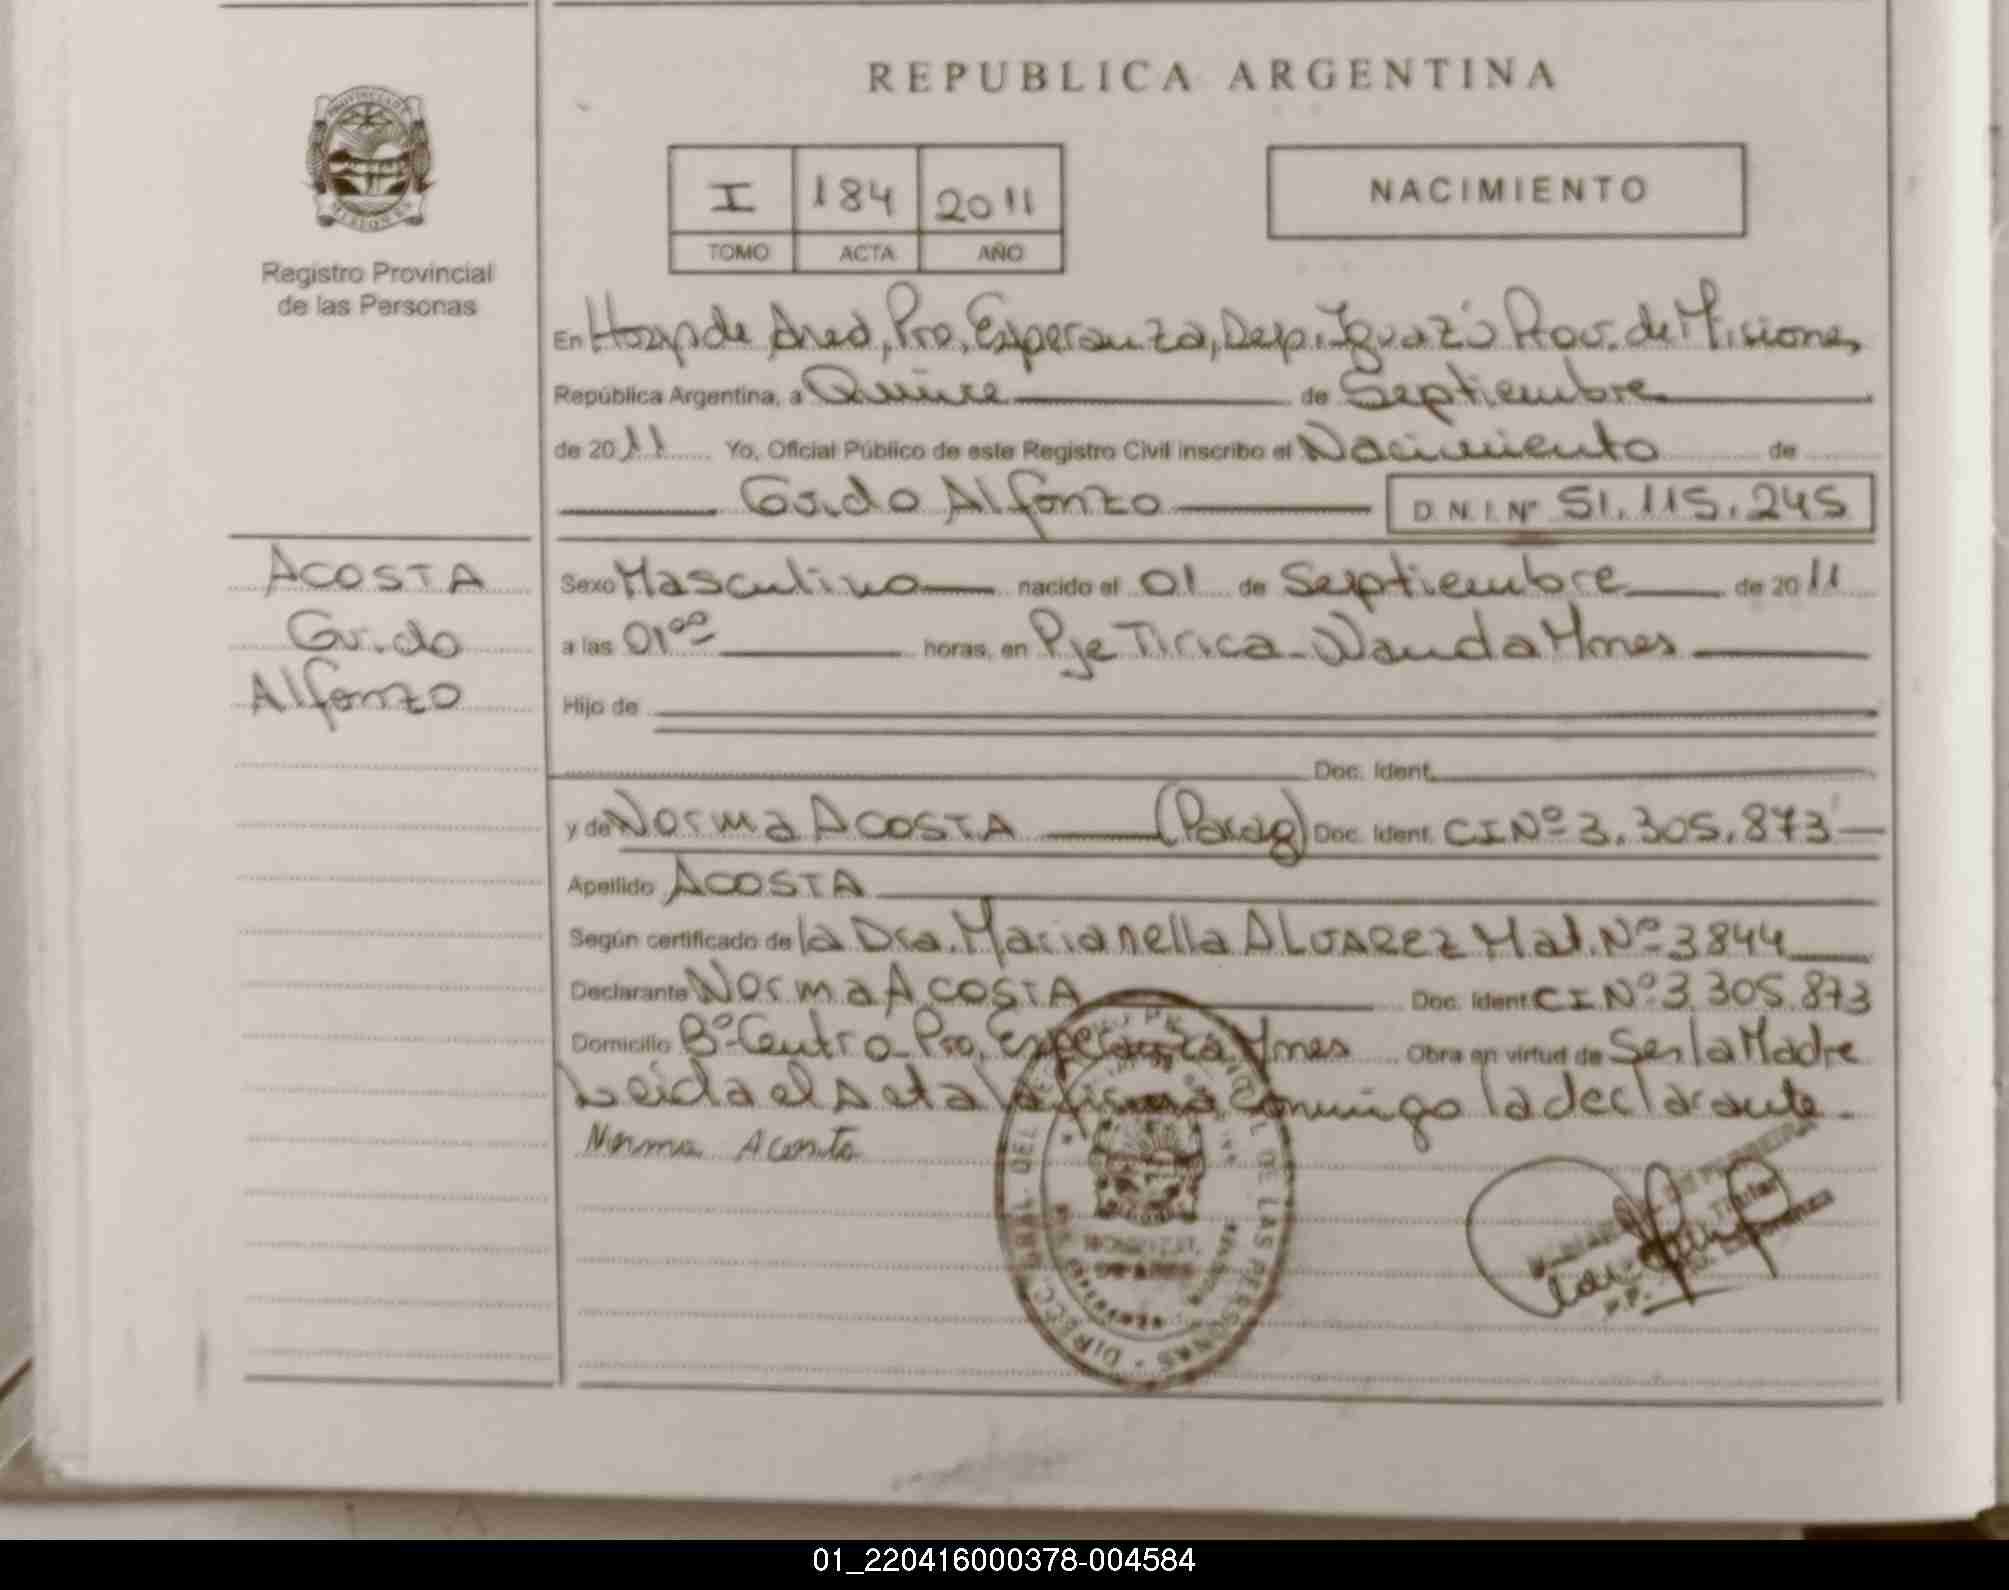 REPUBLICA ARGENTINA
I 184 2011
TOMO ACTA AÑO
NACIMIENTO
Registro Provincial
de las Personas
En Hosp de Area, Pto, Esperanza, Dep. Iguazú Prov. de Misiones
República Argentina, a Quince de Septiembre
de 2011 Yo, Oficial Público de este Registro Civil inscribo el Nacimiento de
Guido Alfonzo D.N.I. Nº 51.115.245
ACOSTA
Guido
Alfonzo
Sexo Masculino nacido el 01 de Septiembre de 2011
a las 01ºº horas, en Pje Tirica - Wanda Mnes
Hijo de
Doc. Ident.
y de Norma ACOSTA (Parag) Doc. Ident. CI Nº 3.305.873
Apellido ACOSTA
Según certificado de la Dra. Marianella ALVAREZ Mat. Nº 3844
Declarante Norma ACOSTA Doc. Ident CI Nº 3.305.873
Domicilio Bº Centro Pto, Esperanza Mnes Obra en virtud de Ser la Madre
Leida el Acta la firma conmigo la declarante
Norma Acosta
DE LAS PERSONAS
01_220416000378-004584